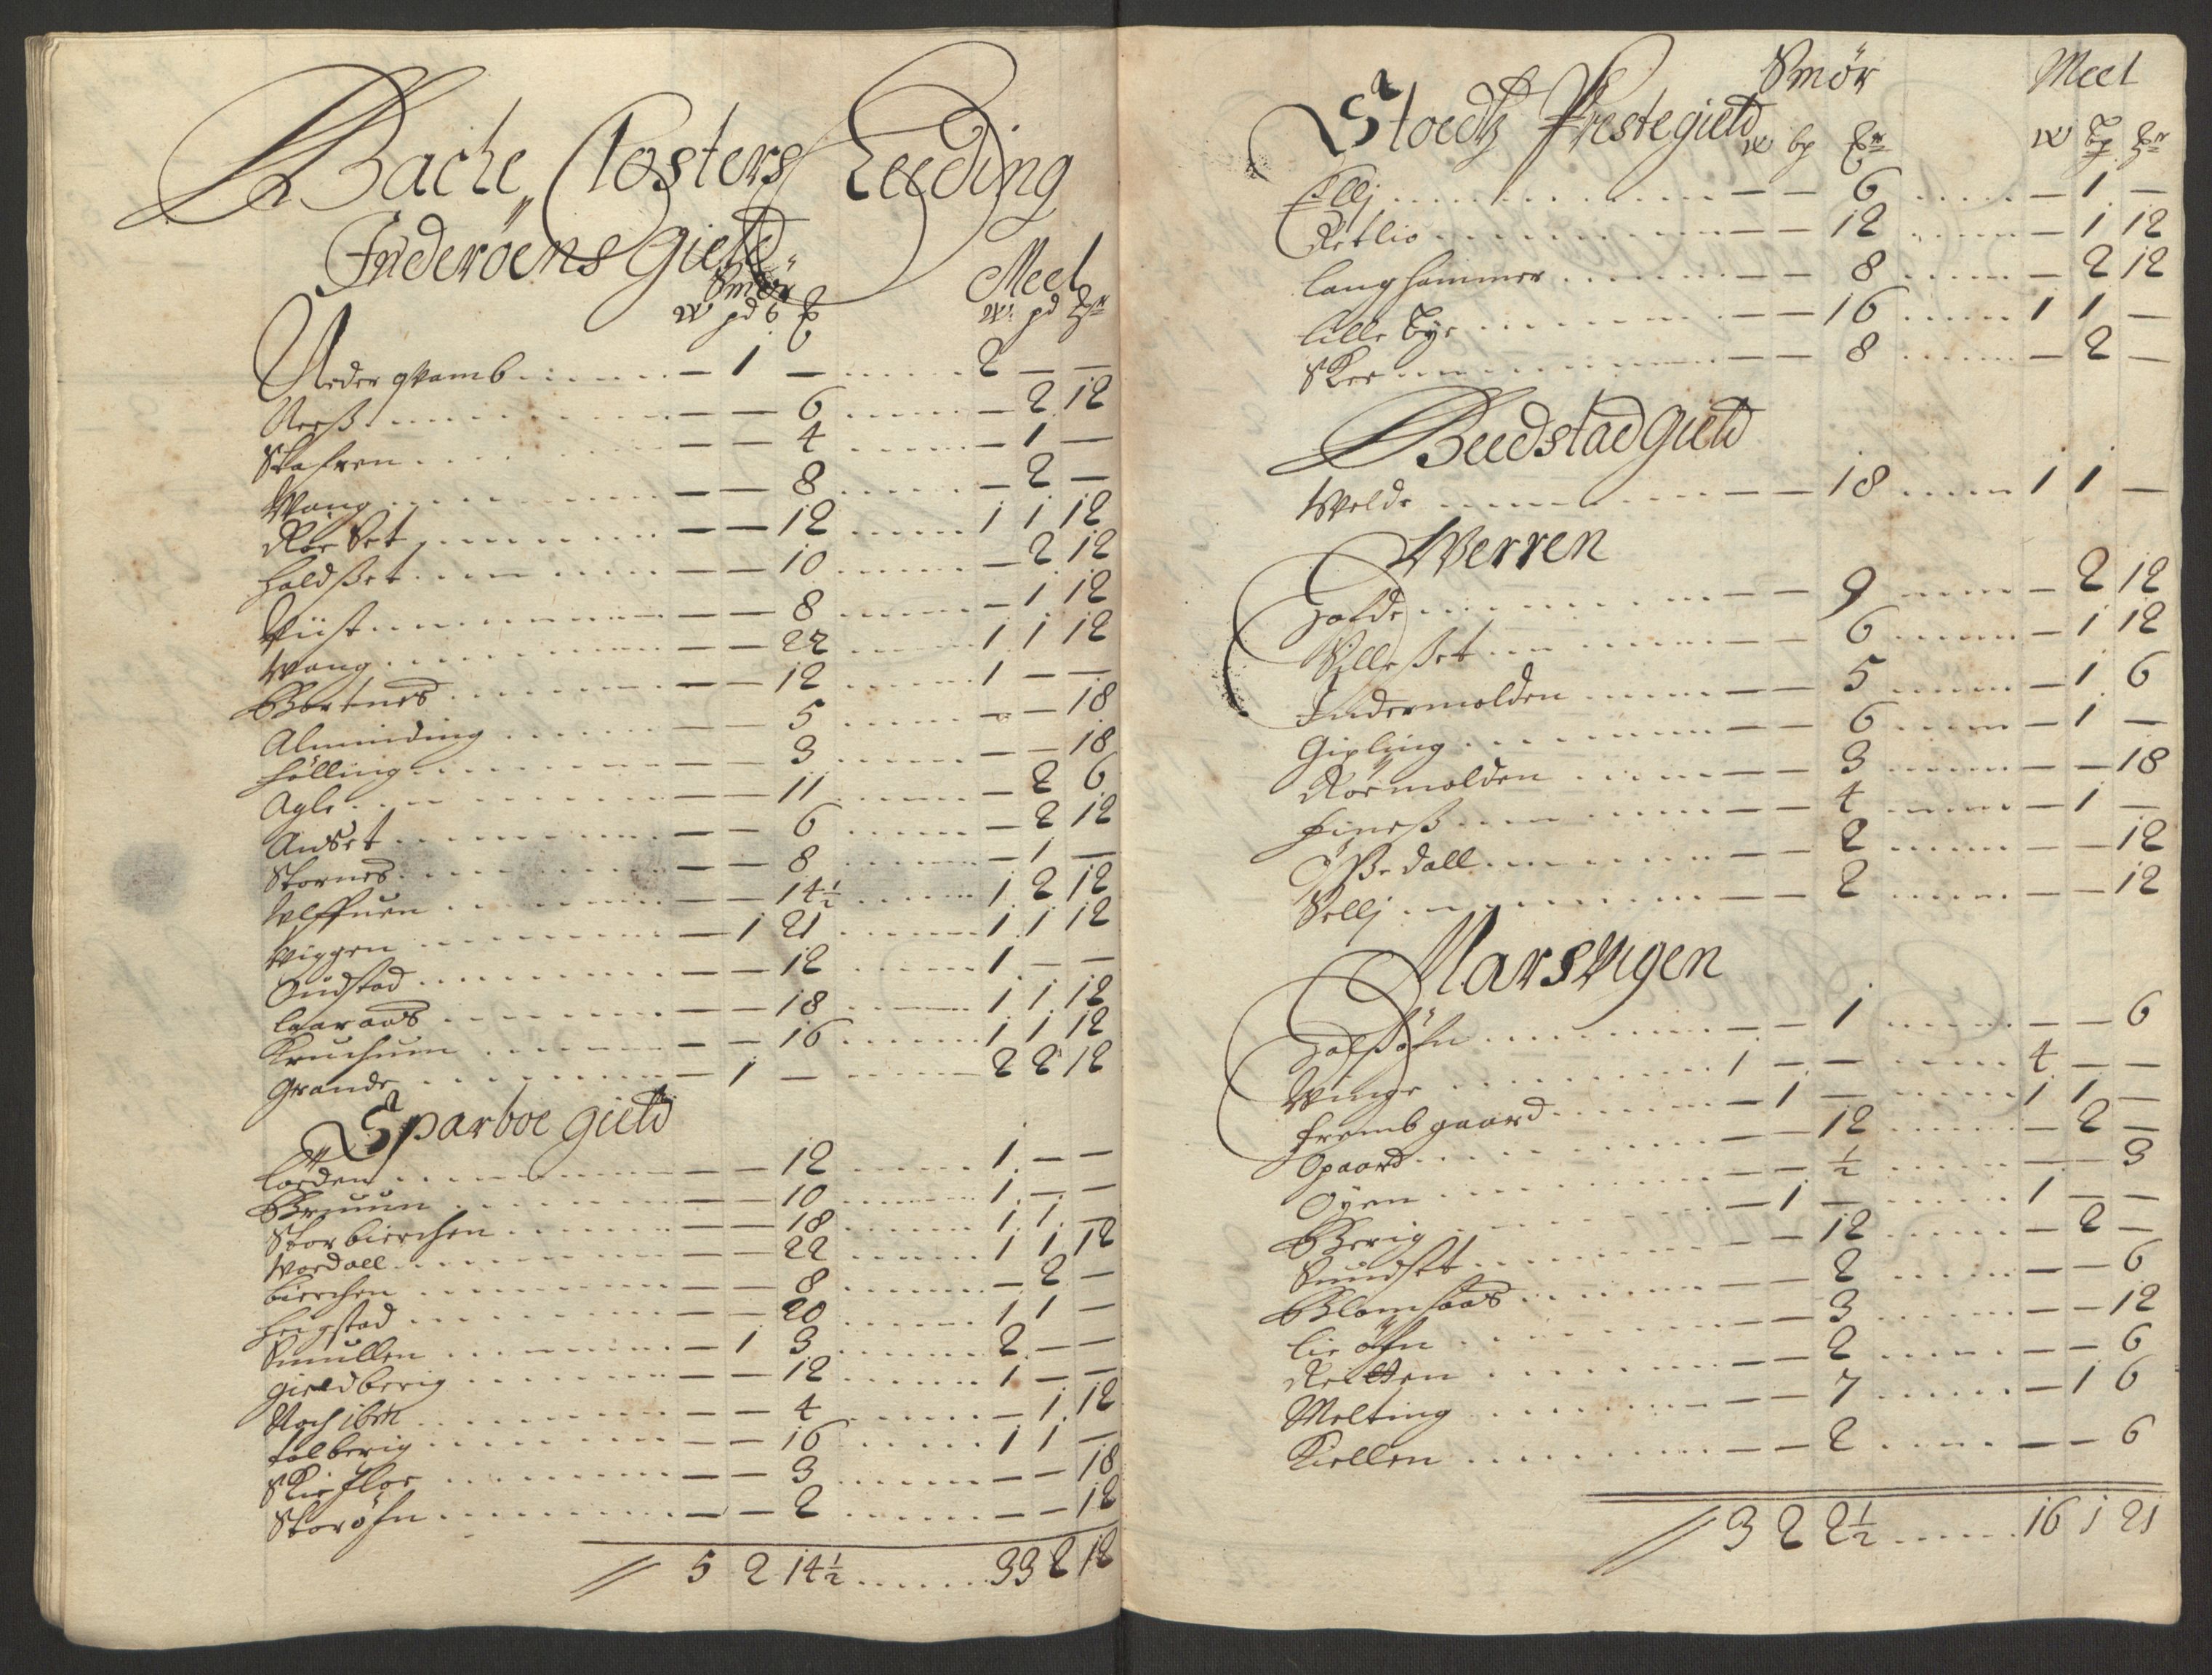 Bache Closters Leeding
Inderøens gield
Smør Meel
w pd Lb w pd Lb
Neder qvamb . . . — 1 — . . . 2 — —
Neerß . . . — — 6 . . . — 2 12
Stafren . . . — — 4 . . . — 1 —
Wang . . . — — 8 . . . — 2 —
RoeSet . . . — — 12 . . . 1 1 12
Haldßet . . . — — 10 . . . — 2 12
Viist . . . — — 8 . . . — 1 12
Wang . . . — — 22 . . . 1 1 12
Bartnes . . . — — 12 . . . 1 — —
Alminding . . . — — 5 . . . — — 18
Hølling . . . — — 3 . . . — — 18
Agle . . . — — 11 . . . — 2 6
AuSet . . . — — 6 . . . — 2 12
Stornes . . . — — 8 . . . — 1 —
Ulffuen . . . — — 14½ . . . 1 2 12
Viggen . . . — 1 21 . . . 1 1 12
Sundstad . . . — — 12 . . . 1 — —
Laaraas . . . — — 18 . . . 1 1 12
Kruchum . . . — — 16 . . . 1 1 12
Grande . . . — 1 — . . . 2 2 12
Sparboe gield
Lørden . . . — — 12 . . . 1 — —
Bruum . . . — — 10 . . . 1 — —
Stor bierchen . . . — — 18 . . . 1 1 —
Wordall . . . — — 22 . . . 1 1 12
bierchen . . . — — 8 . . . — 2 —
Hegstad . . . — — 20 . . . 1 1 —
Smullen . . . — 1 3 . . . 2 — —
Gieldberig . . . — — 12 . . . 1 — —
Noch ibm . . . — — 4 . . . — 1 12
Falberig . . . — — 16 . . . 1 1 —
Skiefloe . . . — — 3 . . . — — 18
Storøfn . . . — — 2 . . . — — 12
// 5 2 14½ . . . 33 2 12
Stoedß Prestegield Smør Meel
w bp w bp
Ellj . . . — — 6 . . . — 1 —
Retlio . . . — — 12 . . . — 1 12
Langhammer . . . — — 8 . . . — 2 12
Lille Bye . . . — — 16 . . . 1 1 —
Skee . . . — — 8 . . . — 2 —
Beedstad Gield
Welde . . . — — 18 . . . 1 1 —
Werren
Holde . . . — — 9 . . . — 2 12
Silleßet . . . — — 6 . . . — 1 12
Indermolden . . . — — 5 . . . — 1 6
Gipling . . . — — 6 . . . — 1 —
Rørmolden . . . — — 3 . . . — — 18
Fineß . . . — — 4 . . . — 1 —
Ößedall . . . — — 2 . . . — — 12
Sellj . . . — — 2 . . . — — 12
Marsvigen
Halßøfn . . . — — 1 . . . — — 6
Vinge . . . 1 — — . . . 4 — —
Frembgaard . . . — 1 — . . . 1 1 —
Opaard . . . — — 12 . . . — 2 —
Oyen . . . — — ½ . . . — — 3
Berig . . . — 1 — . . . 1 — —
Sundset . . . — — 12 . . . — 2 —
Blomsaas . . . — — 2 . . . — — 6
Lie øfn . . . — — 3 . . . — — 12
Reitten . . . — — 2 . . . — — 6
Molting . . . — — 7 . . . — 1 6
Kiellen . . . — — 2 . . . — — 6
// 3 2 2½ . . . 16 1 21